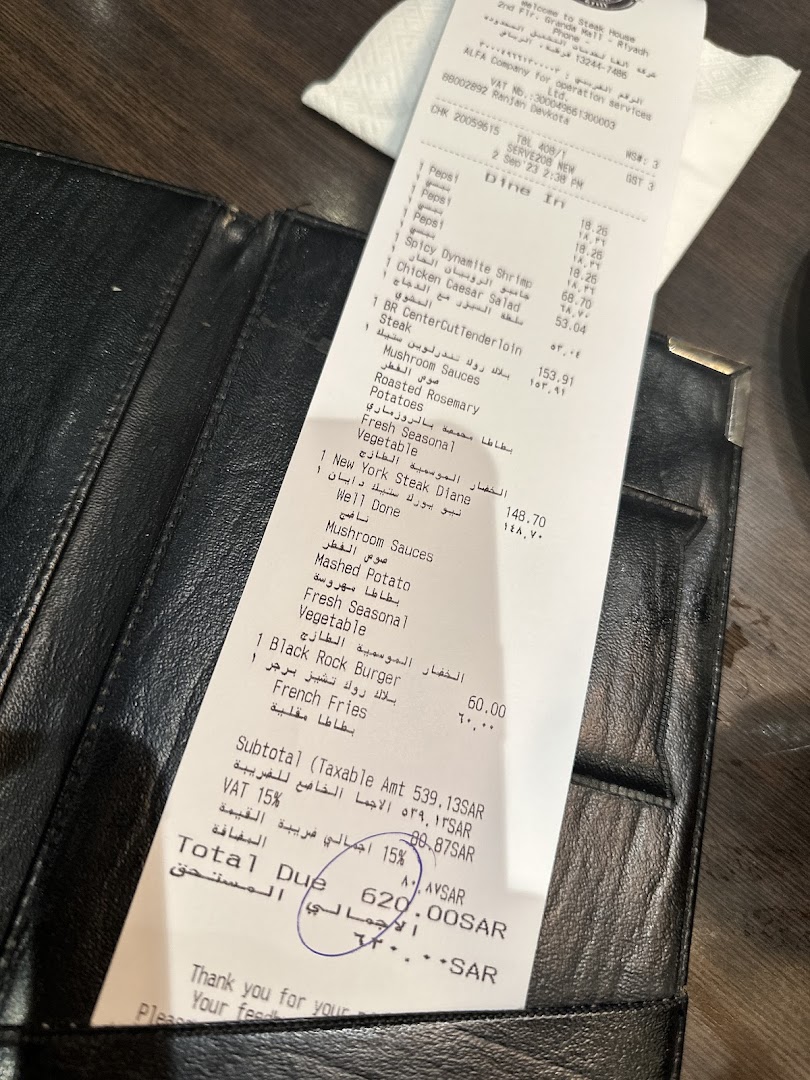 Welcome to Steak House
2nd Flr. Granda Mall - Riyadh
Phone -
13244-7486
ALFA Company for operation services
Ltd.
VAT No.:300049661300003
88002892 Ranjan Devkota
CHK 20059615 TBL 408/1 WS#: 3
SERVE208 NEW GST 3
2 Sep'23 2:38 PM
Dine In
1 Pepsi 18.26
بيبسي ١٨.٢٦
1 Pepsi 18.26
بيبسي ١٨.٢٦
1 Pepsi 18.26
بيبسي ١٨.٢٦
Spicy Dynamite Shrimp 68.70
٦٨.٧٠
1 Chicken Caesar Salad 53.04
سلطة السيزر مع الدجاج ٥٣.٠٤
المشوي
1 BR CenterCutTenderloin 153.91
Steak
١ بلاك روك تندرلوين ستيك ١٥٣.٩١
Mushroom Sauces
صوص الفطر
Roasted Rosemary
Potatoes
بطاطا محمصة بالروزماري
Fresh Seasonal
Vegetable
الخضار الموسمية الطازج
1 New York Steak Diane 148.70
١ نيو يورك ستيك دايان ١٤٨.٧٠
Well Done
ناضج
Mushroom Sauces
صوص الفطر
Mashed Potato
بطاطا مهروسة
Fresh Seasonal
Vegetable
الخضار الموسمية الطازج
1 Black Rock Burger 60.00
١ بلاك روك تشيز برجر ٦٠.٠٠
French Fries
بطاطا مقلية
Subtotal (Taxable Amt 539.13SAR
الاجما الخاضع للضريبة ٥٣٩.١٣SAR
VAT 15% 80.87SAR
15% اجمالي ضريبة القيمة ٨٠.٨٧SAR
المضافة
Total Due 620.00SAR
الاجمالي المستحق ٦٢٠.٠٠SAR
Thank you for your
Your